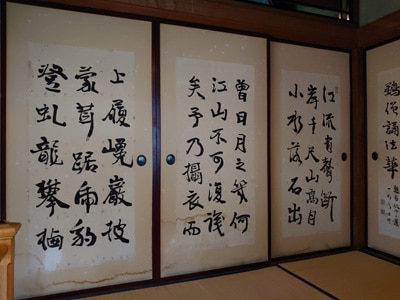 僧誦法華
江流有聲斷
岸千尺山高月
小水落石出
曾日月之幾何
江山不可復識
矣予乃攝衣而
上履巉巖披
蒙茸踞虎豹
登虬龍攀栖